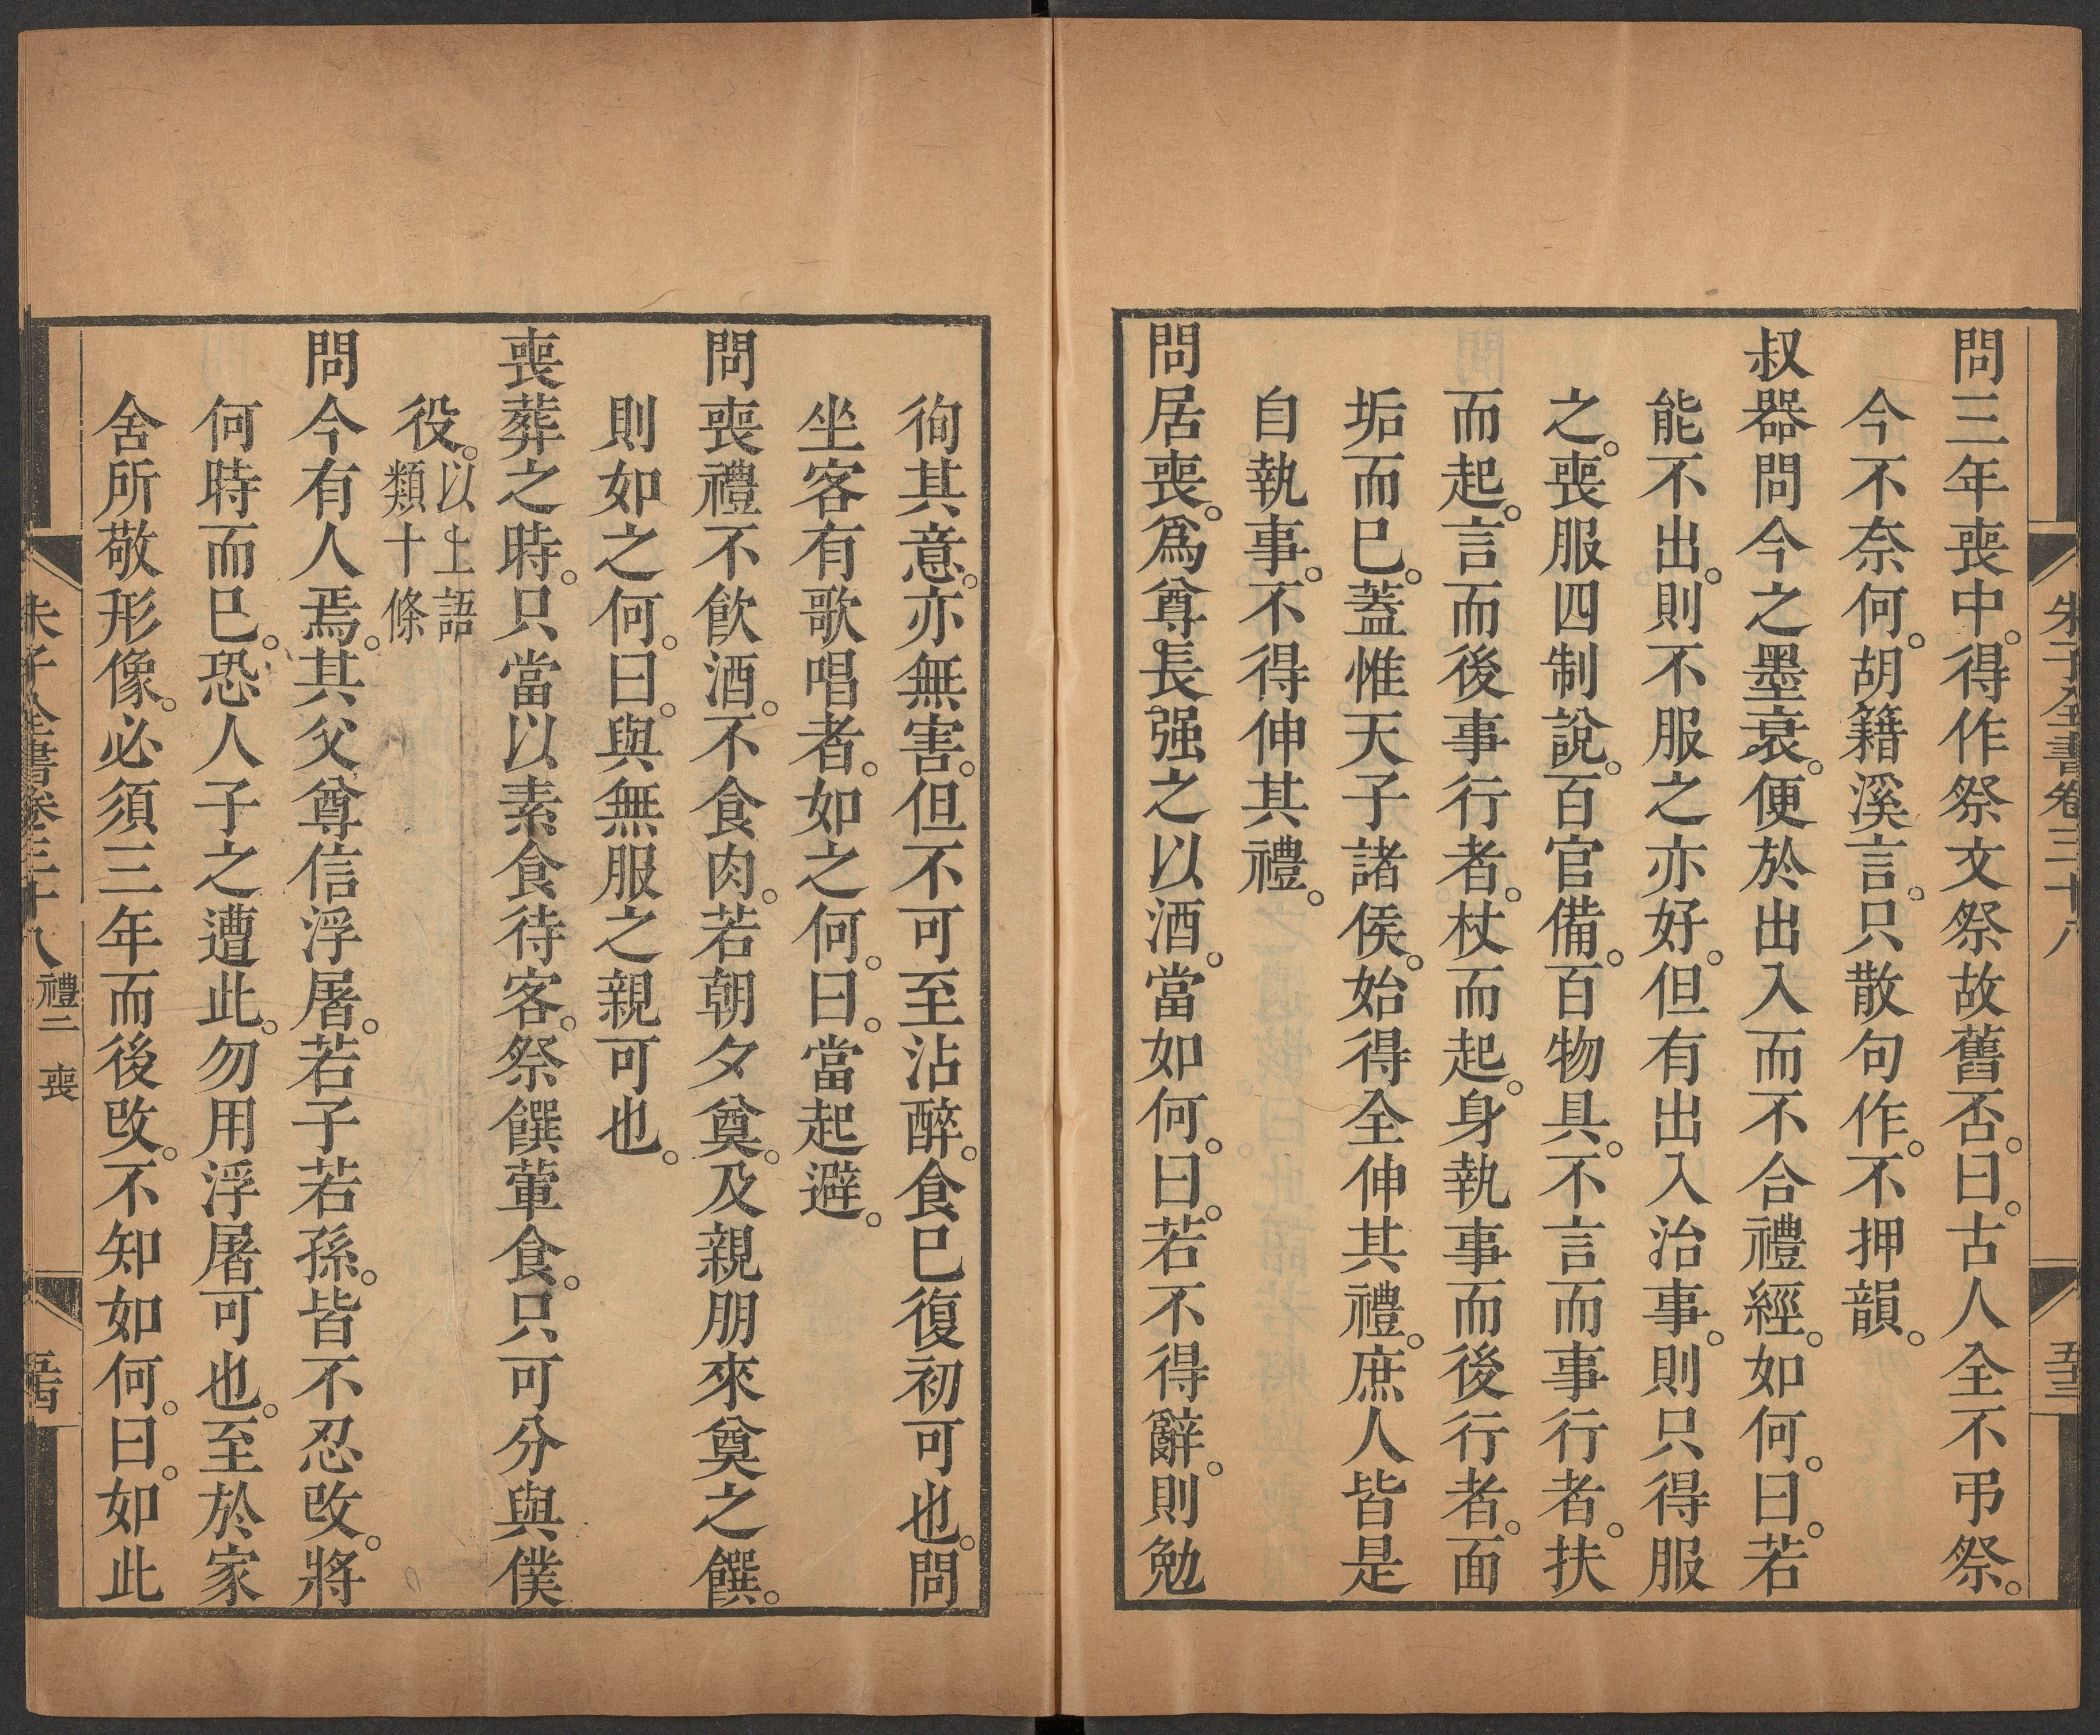 朱子全書卷三十八
五十三
問三年喪中。得作祭文祭故舊否。曰。古人全不弔祭。
今不奈何。胡籍溪言。只散句作。不押韻。
叔器問今之墨衰。便於出入而不合禮經。如何。曰。若
能不出。則不服之亦好。但有出入治事。則只得服
之。喪服四制說。百官備。百物具。不言而事行者。扶
而起。言而後事行者。杖而起。身執事而後行者。面
垢而已。蓋惟天子諸侯。始得全伸其禮。庶人皆是
自執事。不得伸其禮。
問居喪。爲尊長强之以酒。當如何。曰。若不得辭。則勉
徇其意。亦無害。但不可至沾醉。食已復初可也。問
坐客有歌唱者。如之何。曰。當起避。
問喪禮不飲酒。不食肉。若朝夕奠。及親朋來奠之饌。
則如之何。曰。與無服之親可也。
喪葬之時。只當以素食待客。祭饌葷食。只可分與僕
役。以上語
類十條
問今有人焉。其父尊信浮屠。若子若孫。皆不忍改。將
何時而已。恐人子之遭此。勿用浮屠可也。至於家
舍所敬形像。必須三年而後改。不知如何。曰。如此
朱子全書卷三十八 禮二 喪
五十四